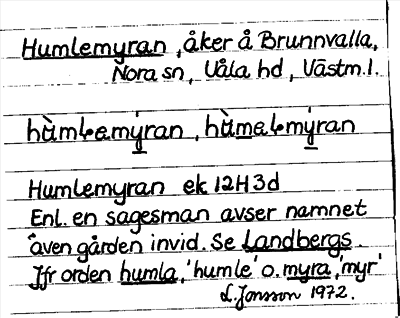 Humlemyran, åker å Brunnvalla,
Nora sn, Våla hd, Västm.l.
hùmlemýran, hùmelmýran
Humlemyran ek 12H3d
Enl. en sagesman avser namnet
även gården invid. Se Landbergs.
Jfr orden humla, 'humle' o. myra, 'myr'
L. Jonsson 1972.